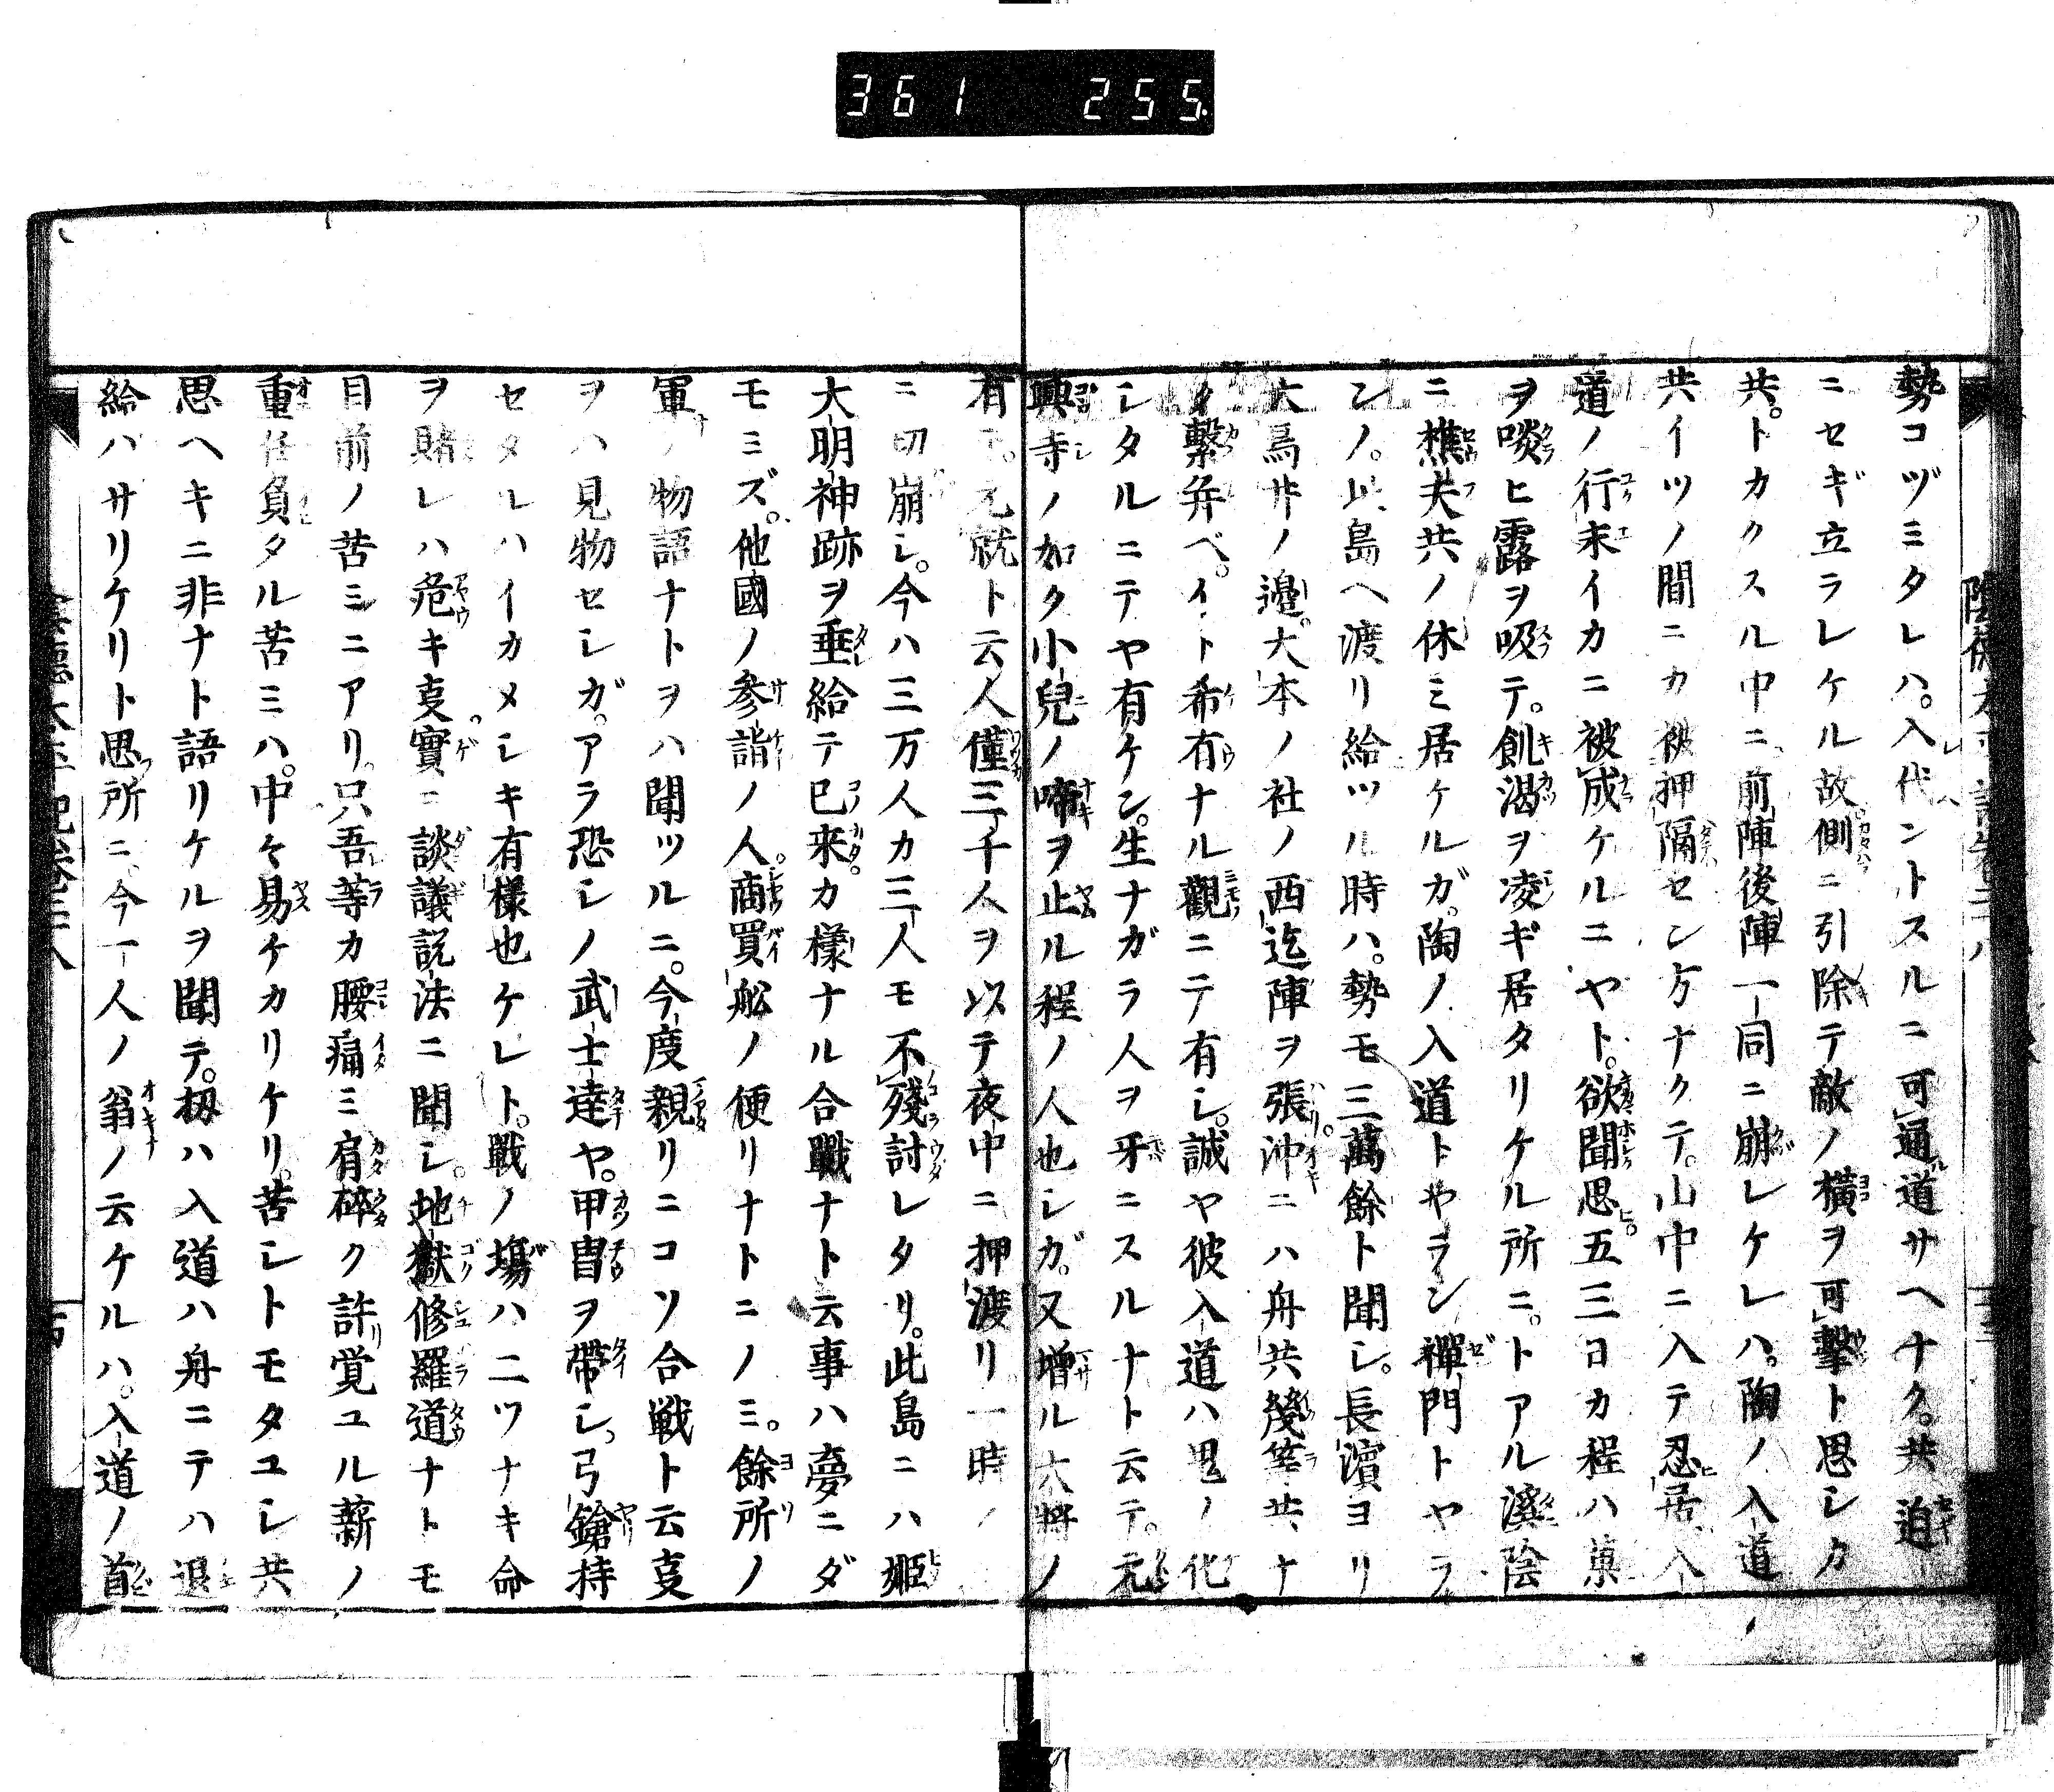 361 255
勢コゾミタレハ。入代ントスルニ可通道サヘナク。共迫
ニセギ立ラレケル故。側ニ引除テ敵ノ横ヲ可撃ト思シカ
共。トカクスル中ニ。前陣後陣一同ニ崩レケレハ。陶ノ入道ノ
共イツノ間ニカ被押隔セン方ナクテ。山中ニ入テ忍居。入
道ノ行末イカニ被成ケルニヤト。欲聞思ヒ。五三日カ程ハ菓
ヲ啖ヒ露ヲ吸テ。飢渇ヲ凌ギ居タリケル所ニ。トアル溪陰
ニ樵夫共ノ休ミ居ケルガ。陶ノ入道トヤラン禪門トヤラ
ンノ。此島ヘ渡リ給ツル時ハ。勢モ三萬餘ト聞シ。長濱ヨリ
大鳥井ノ邊。大本ノ社ノ西迄陣ヲ張リ。沖ニハ舟共幾等共ナ
ク繋弁ベ。イト希有ナル觀ニテ有シ。誠ヤ彼入道ハ鬼ノ化
シタルニテヤ有ケン。生ナガラ人ヲ牙ニスルナト云テ。元
興寺ノ如ク小兒ノ啼ヲ止ル程ノ人也シガ。又増ル大將ノ
有テ。元就ト云人僅三千人ヲ以テ夜中ニ押渡リ一時ノ
ニ切崩シ。今ハ三万人カ三人モ不殘討レタリ。此島ニハ姫
大明神跡ヲ垂給テ已来。カ樣ナル合戰ナト云事ハ夢ニダ
モミズ。他國ノ參詣ノ人。商買舩ノ便リナトニノミ。餘所ノ
軍ノ物語ナトヲハ聞ツルニ。今度親リニコソ合戦ト云叓
ヲハ見物セシガ。アラ恐シノ武士達ヤ。甲冑ヲ帶シ。弓鎗持
セタレハイカメシキ有樣也ケレト。戰ノ塲ハ二ツナキ命
ヲ賭レハ危キ叓。實ニ談議説法ニ聞シ。地獄修羅道ナトモ
目前ノ苦ミニアリ。只吾等カ腰痛ミ肩碎ク許リ覚ユル薪ノ
重任負タル苦ミハ。中々易ケカリケリ。苦シトモタユシ共
思ヘキニ非ナト語リケルヲ聞テ。扨ハ入道ハ舟ニテハ退
給ハサリケリト思フ所ニ。今一人ノ翁ノ云ケルハ。入道ノ首